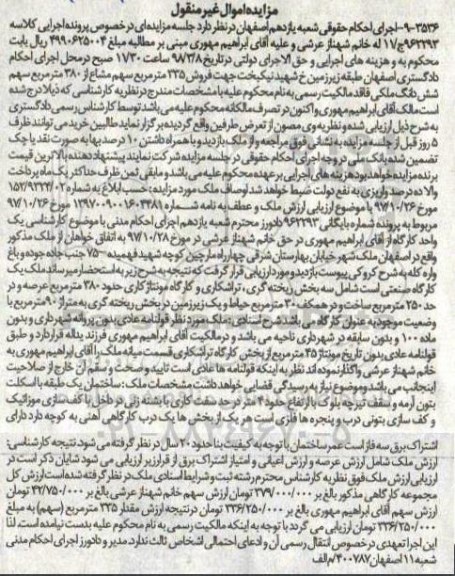 مزایده اموال غیر منقول
۹-۳۵۳۶- اجرای احکام حقوقی شعبه یازدهم اصفهان در نظر دارد جلسه مزایده ای در خصوص پرونده اجرایی کلاسه
۹۶۲۲۹۳ ج/۱۷ له خانم شهناز عرشی و علیه آقای ابراهیم مهوری مبنی بر مطالبه مبلغ ۴۹۹۰۶۲۵۰۰۴ ریال بابت
محکوم به و هزینه های اجرایی و حق الاجرای دولتی در تاریخ ۹۸/۳/۸ ساعت ۱۱/۳۰ صبح در محل اجرای احکام
دادگستری اصفهان طبقه زیرزمین خ شهید نیکبخت جهت فروش ۲۳۵ مترمربع سهم مشاع از ۳۸۰ مترمربع سهم
شش دانگ ملکی فاقد مالکیت رسمی به نام محکوم علیه با مشخصات مندرج در نظریه کارشناسی که ذیلا درج شده
است مالک آقای ابراهیم مهوری و اکنون در تصرف مالکانه محکوم علیه می باشد توسط کارشناس رسمی دادگستری
به شرح ذیل ارزیابی شده و نظریه وی مصون از تعرض طرفین واقع گردیده برگزار نماید طالبین خرید می توانند ظرف
۵ روز قبل از جلسه مزایده به نشانی فوق مراجعه و از ملک بازدید و با همراه داشتن ۱۰ درصد بها به صورت نقد یا چک
تضمین شده بانک ملی در وجه اجرای احکام حقوقی در جلسه مزایده شرکت نمایند پیشنهاد دهنده بالاترین قیمت
برنده مزایده خواهد بود هزینه های اجرایی بر عهده محکوم علیه می باشد و مابقی ثمن ظرف حداکثر یک ماه پرداخت
والا ده درصد واریزی به نفع دولت ضبط خواهد شد اوصاف ملک مورد مزایده: حسب ابلاغ به شماره
مورخ ۹۷/۱۰/۲۶ با موضوع ارزیابی ارزش ملک و عطف به نامه شماره مورخ ۹۷/۱۰/۲۶
مربوط به پرونده شماره بایگانی ۹۶۲۲۹۳ دادورز محترم شعبه یازدهم اجرای احکام مدنی با موضوع کارشناسی یک
واحد کارگاه از آقای ابراهیم مهوری در حق خانم شهناز عرشی در مورخ ۹۷/۱۰/۲۸ به اتفاق خواهان از ملک مذکور
واقع در اصفهان ملک شهر خیابان بهارستان شرقی چهارراه مارچین کوچه شهید فهمیده -۷۵ جنب جاده جوده و باغ
واره کله به شرح کروکی پیوست بازدید و مورد ارزیابی قرار گرفت که نتیجه به شرح زیر به استحضار میرساند ملک یک
کارگاه صنعتی است شامل سه بخش ریخته گری، تراشکاری و کارگاه مونتاژ کاری حدود ۳۸۰ مترمربع عرصه و در
حد ۲۵۰ مترمربع ساخت و در همکف ۳۰ مترمربع حیاط و یک زیرزمین در بخش ریخته گری به متراژ ۹۰ مترمربع با
وضعیت موجود به عنوان کارگاه می باشد شرح اسنادی: ملک مورد نظر قولنامه عادی بدون پروانه شهرداری و بدون
ماده ۱۰۰ و بدون سابقه در شهرداری ناحیه می باشد و در مالکیت آقای ابراهیم مهوری فرزند یداله قرار دارد و طبق
قولنامه عادی بدون تاریخ مونتاژ ۴۵ مترمربع از بخش کارگاه تراشکاری قسمت میانه ملک را آقای ابراهیم مهوری به
خانم شهناز عرشی واگذار نموده اند نظر به اینکه قولنامه ها عادی است تایید و صحت و سقم آن خارج از صلاحیت
اینجانب می باشد و موضوع نیاز به رسیدگی قضایی خواهد داشت مشخصات ملک: ساختمان یک طبقه با اسکلت
بتون آرمه و سقف تیرچه بلوک با ارتفاع حدود ۴ متر در حد سفت کاری با پشته زنی در داخل با کف سازی موزائیک
و کف سازی بتونی درب و پنجره ها فلزی است هر یک از بخش ها یک درب کارگاهی آهنی به کوچه دارد دارای
اشتراک برق سه فاز است عمر ساختمان با توجه به کیفیت بنا حدود ۲۰ سال در نظر گرفته می شود نتیجه کارشناسی:
ارزش ملک شامل ارزش عرصه و ارزش اعیانی و امتیاز اشتراک برق از قرار زیر ارزیابی می شود شایان ذکر است در
ارزیابی ارزش ملک فوق نظریه کارشناس محترم رشته ثبت و شرایط اسنادی ملک در نظر گرفته شده است ارزش کل
مجموعه کارگاهی مذکور بالغ بر ۳۷۹/۰۰۰/۰۰۰ تومان ارزش سهم خانم شهناز عرشی بالغ بر ۴۲/۷۵۰/۰۰۰ تومان
ارزش سهم آقای ابراهیم مهوری بالغ بر ۳۳۶/۲۵۰/۰۰۰ تومان در نتیجه ارزش مقدار ۳۳۵ مترمربع (سهم) به مبلغ
۳۳۶/۲۵۰/۰۰۰ تومان ارزیابی می گردد با توجه به اینکه مالکیت رسمی به نام محکوم علیه بدست نیامده است، لذا
این اجرا تعهدی در خصوص انتقال رسمی آن و ادعای احتمالی اشخاص ثالث ندارد. مدیر و دادورز اجرای احکام مدنی
شعبه ۱۱ اصفهان ۴۰۰۷۸۷/م الف